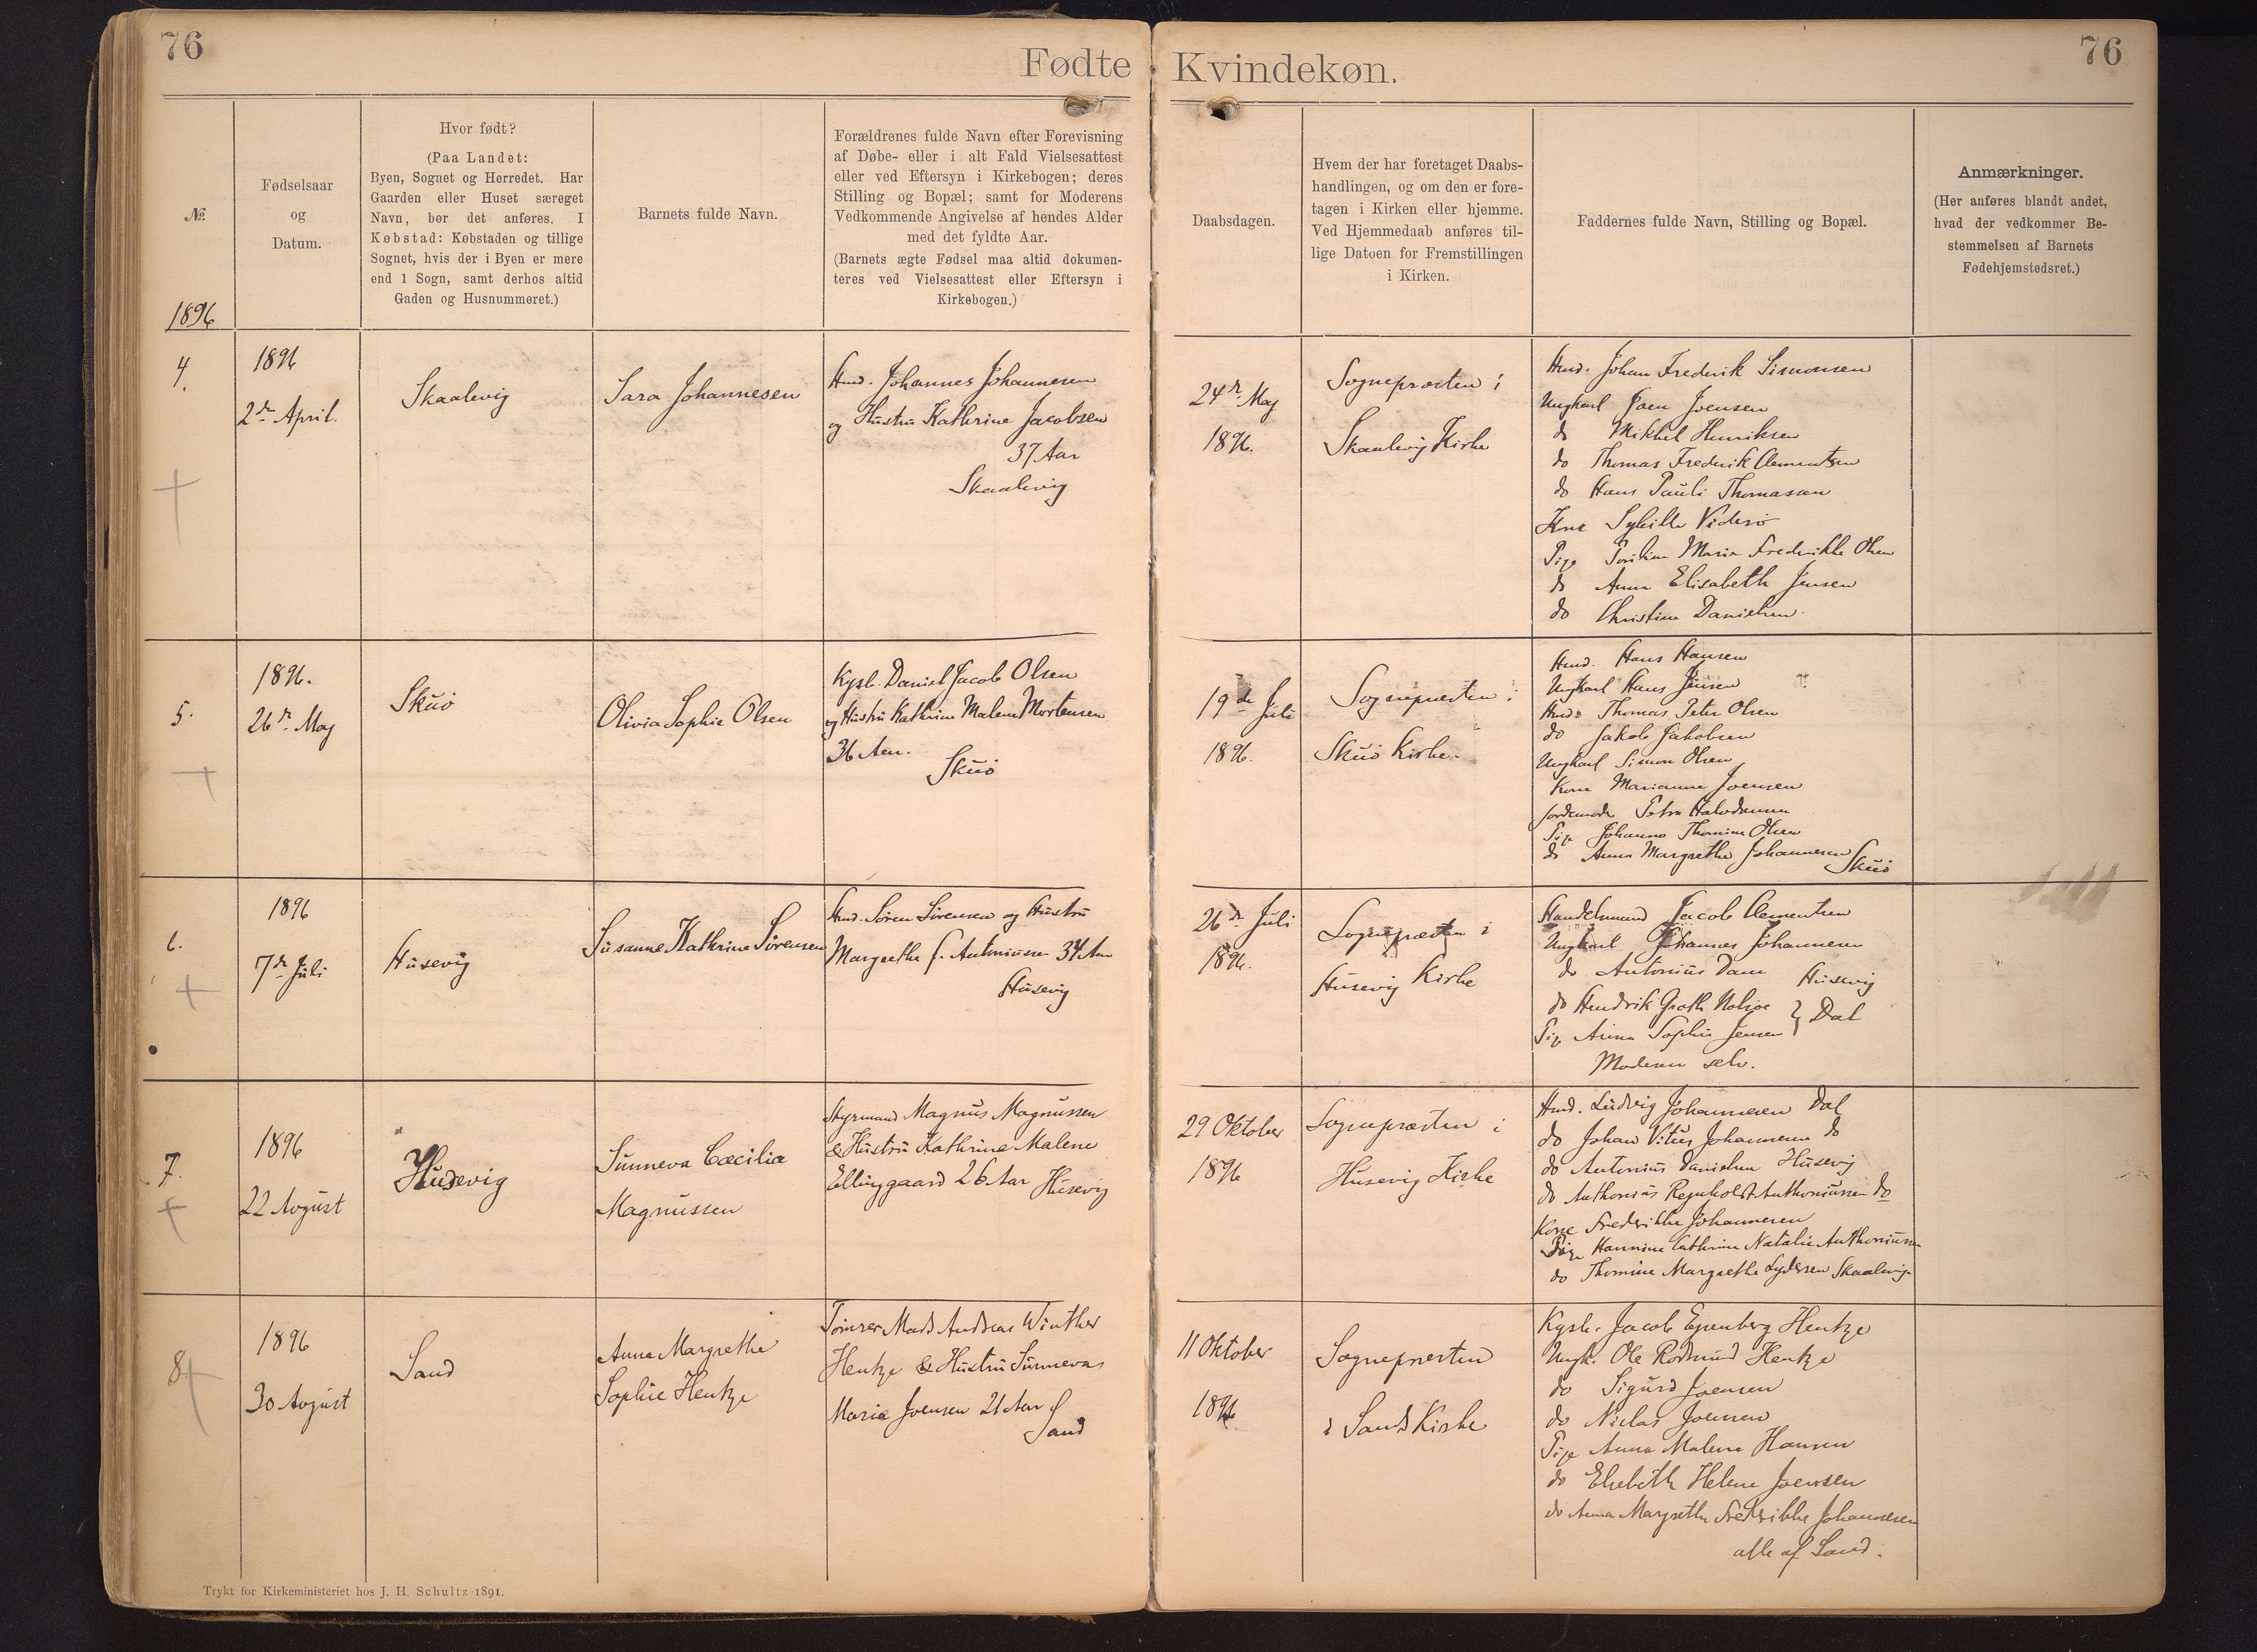 76
Fødte
Kvindekøn.
76
№
1896
Fødselsaar
og
Datum.
Hvor født?
(Paa Landet:
Byen, Sognet og Herredet. Har
Gaarden eller Huset særeget
Navn, bør det anføres. I
Købstad: Købstaden og tillige
Sognet, hvis der i Byen er mere
end 1 Sogn, samt derhos altid
Gaden og Husnummeret.)
Barnets fulde Navn.
Forældrenes fulde Navn efter Forevisning
af Døbe- eller i alt Fald Vielsesattest
eller ved Eftersyn i Kirkebogen; deres
Stilling og Bopæl; samt for Moderens
Vedkommende Angivelse af hendes Alder
med det fyldte Aar.
(Barnets ægte Fødsel maa altid dokumen-
teres ved Vielsesattest eller Eftersyn i
Kirkebogen.)
Daabsdagen.
Hvem der har foretaget Daabs-
handlingen, og om den er fore-
tagen i Kirken eller hjemme.
Ved Hjemmedaab anføres til-
lige Datoen for Fremstillingen
i Kirken.
Faddernes fulde Navn, Stilling og Bopæl.
Anmærkninger.
(Her anføres blandt andet,
hvad der vedkommer Be-
stemmelsen af Barnets
Fødehjemstedsret.)
4.
1896
2den April.
Skaalevig
Sara Johannesen
Hmd. Johannes Johannesen
og Hustru Kathrine Jacobsen
37 Aar
Skaalevig
24de May
1896.
Sognepræsten i
Skaalevig Kirke
Hmd. Johan Frederik Simonsen
Ungkarl Joen Joensen
do Mikkel Henriksen
do Thomas Frederik Clementsen
do Hans Pauli Thomasen
Kone Sybille Viderø
Pige Maria Frederikke Olsen
do Anna Elisabeth Jensen
do Christine Danielsen
5.
1896.
26de May
Skuø
Olivia Sophie Olsen
Kgsb. Daniel Jacob Olsen
og Hustru Kathrine Malene Mortensen
36 Aar.
Skuø
19de Juli
1896.
Sognepræsten i
Skuø Kirke.
Hmd. Hans Hansen
Ungkarl Hans Jensen
Hmd. Thomas Peter Olsen
do Jakob Jakobsen
Ungkarl Simon Olsen
Kone Marianne Joensen
Petra
Pige Johanna Thomine Olsen
do Anna Margrethe Johannesen
Skuø
6.
1896
7de Juli
Husevig
Susanne Kathrine Sørensen
Hmd. Søren Sørensen og Hustru
Margrethe f. Antoniussen 34 Aar
Husevig
26de Juli
1896.
Sognepræsten i
Husevig Kirke
Handelsmand Jacob Clementsen
Ungkarl Johannes Johannesen
do Antonius Dam Husevig
do Hendrik Groth Nolsøe } Dal
Pige Anna Sophie Jensen
Moderen selv.
7.
1896
22 August
Husevig
Sunneva Cæcilia
Magnussen
Styrmand Magnus Magnussen
& Hustru Kathrine Malene
Ellinggaard 26 Aar Husevig
29 Oktober
1896
Sognepræsten i
Husevig Kirke
Hmd. Ludvig Johannesen Dal
do Johan Vitus Johannesen do
do Antonius Danielsen Husevig
do Anthonius Reynholdt Anthoniussen do
Kone Frederikke Johannesen
Pige Hannine Cathrine Natalie Anthoniussen
do Thomine Margrethe Lydersen Skaalevig.
8
1896
30 August
Sand
Anna Margrethe
Sophie Hentze
Tømrer Mads Andreas Winther
Hentze & Hustru Sunneva
Maria Joensen 21 Aar
Sand
11 Oktober
1896
Sognepræsten
i Sands Kirke
Kgsb. Jacob Eyenberg Hentze
Ungk. Ole Rodmund Hentze
do Sigurd Joensen
do Niclas Joensen
Pige Anna Malena Hansen
do Elsebeth Helene Joensen
do Anna Margrethe Frederikke Johannesen
alle af Sand.
Trykt for Kirkeministeriet hos J. H. Schultz 1891.